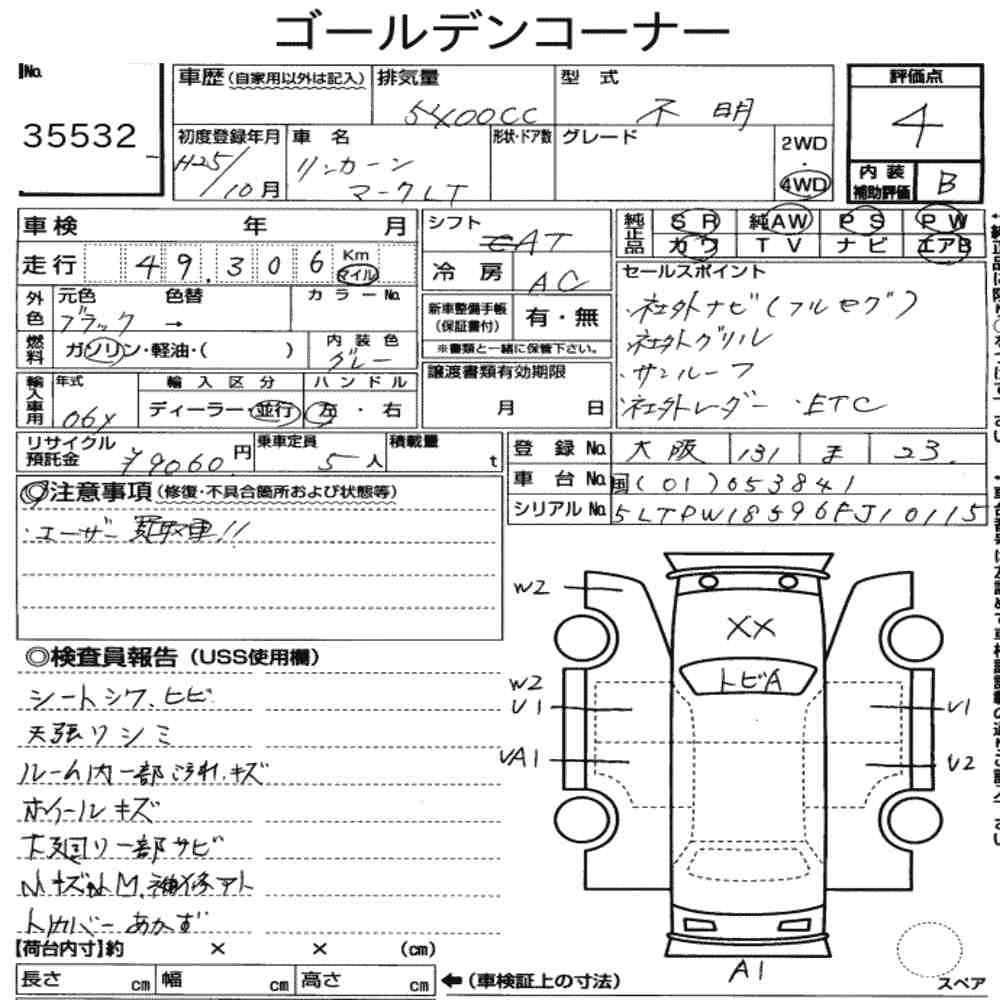 ゴールデンコーナー
No.
35532
車歴(自家用以外は記入)
排気量
5400CC
型式
不明
評価点
4
初度登録年月
H25/10月
車名
リンカーン
マークLT
形状・ドア数
グレード
2WD
・
4WD
内装
補助評価
B
車検 年 月
シフト
AT
純正品
SR 純AW PS PW
カワ TV ナビ エアB
走行 49,306 Km
マイル
冷房
AC
セールスポイント
・社外ナビ(フルセグ)
・社外グリル
・サンルーフ
・社外レーダー ・ETC
外色
元色 色替
ブラック →
カラーNo.
新車整備手帳
(保証書付)
有・無
※書類と一緒に保管下さい。
燃料
ガソリン・軽油・( )
内装色
グレー
譲渡書類有効期限
月 日
輸入車用
年式
06y
輸入区分
ディーラー・並行
ハンドル
左・右
リサイクル
預託金
¥9060円
乗車定員
5人
積載量
t
登録No.
大阪 131 ま 23
車台No.
国(01)053841
シリアルNo.
5LTPW18596FJ10115
◎注意事項(修復・不具合箇所および状態等)
・ユーザー買取車!!
◎検査員報告(USS使用欄)
シートシワ、ヒビ
天張りシミ
ルーム内一部汚れ、キズ
ホイールキズ
下廻り一部サビ
小キズ小凹、補修アト
トノカバーあかず
W2
XX
トビA
W2
U1
UA1
U1
U2
A1
スペア
【荷台内寸】約 × × (cm)
長さ cm 幅 cm 高さ cm
←(車検証上の寸法)